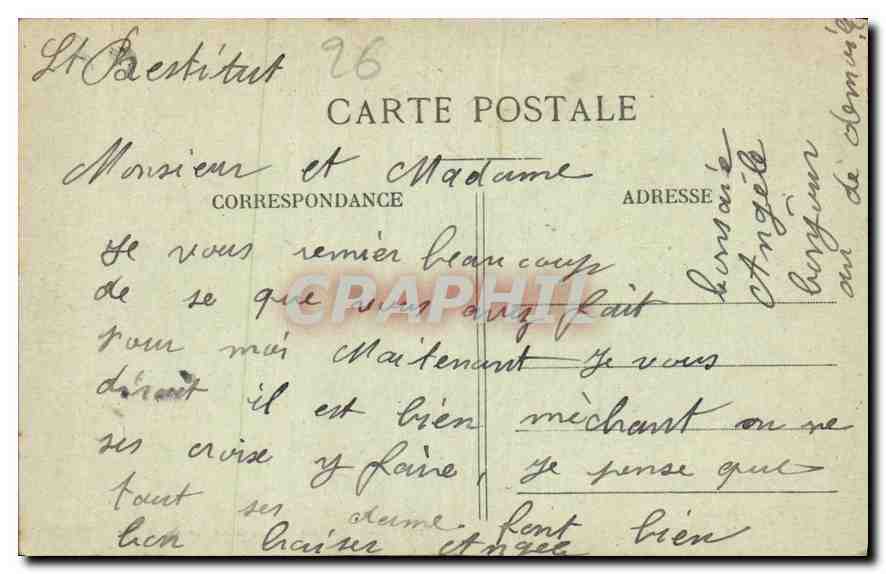 St Restitut 26
CARTE POSTALE
Monsieur et Madame
CORRESPONDANCE ADRESSE
Je vous remier beaucoup
de se que vous avez fait
pour moi Maitenant Je vous
dirait il est bien mèchant on ne
ses croise y faire, Je pense que
tout ses dame font bien
bon baiser Angèle
bonsaie
Angèle
bonjour
au dè demois
CPARHIL